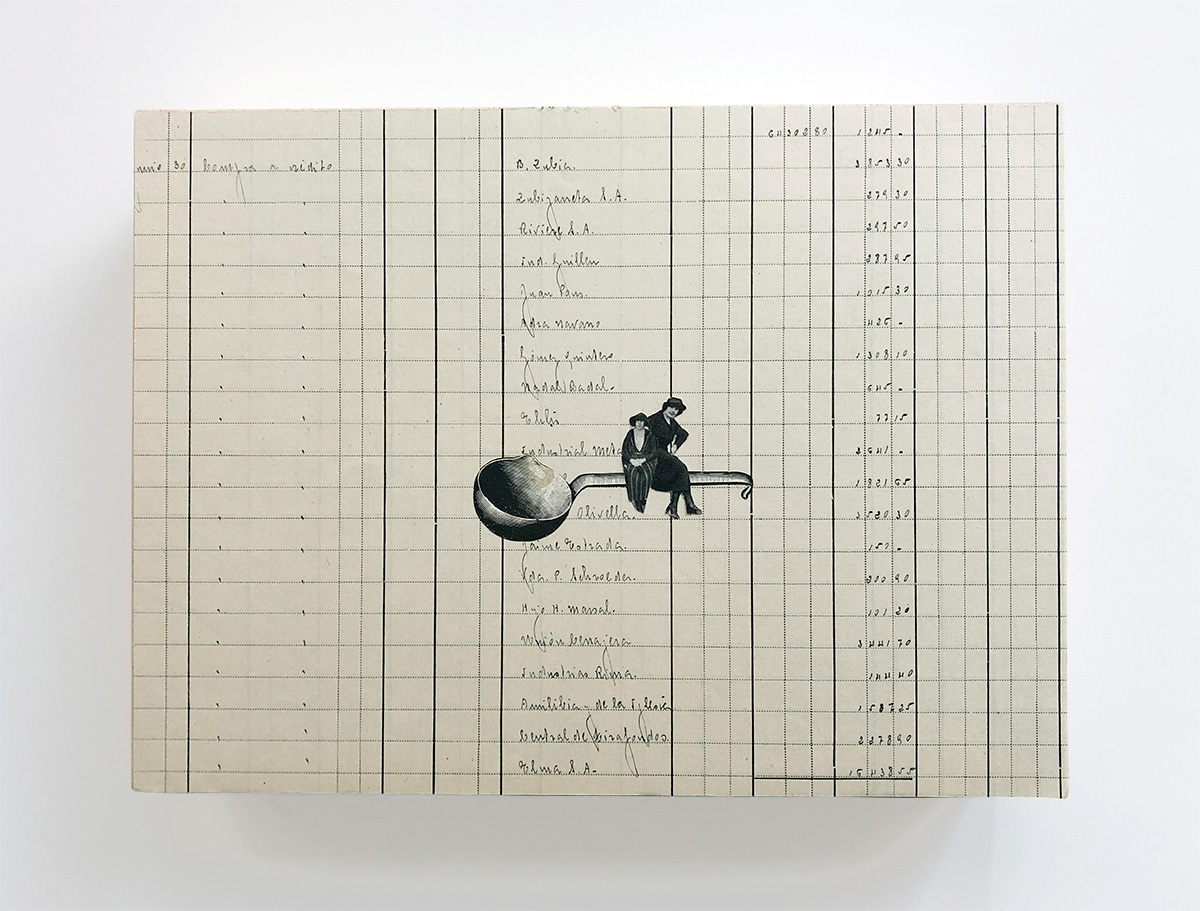 6430280 1245 -
30 Compra a crédito B. Zubia. 385330
Zubizarreta S.A. 27930
Riviere S.A. 29750
Ind. Guillen 28795
Juan Pons. 101530
navarro 425 -
Gómez Quintero 130810
Nadal Badal. 645 -
7715
Industrial 2641 -
180165
Olivella. 358030
Jaime Estrada. 157 -
Vda. P. Schroeder. 20090
Hijo H. massal. 10120
Unión Cerrajera 344170
Industrias Roma. 14440
Amilibia y de la Iglesia 158725
Central de 227890
Elma S.A- 1643855